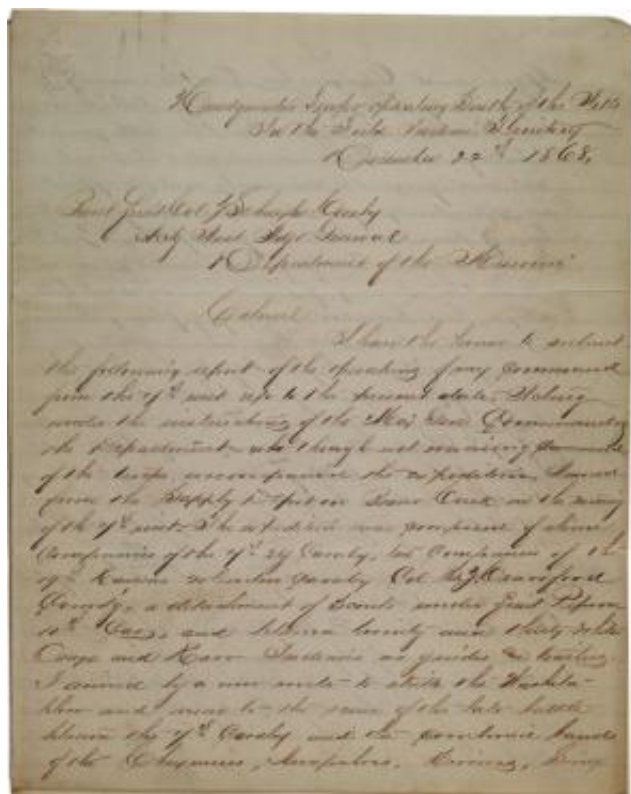 Headquarters Troops operating South of the
In the Field Indian Territory
December 22nd 1868,
Col J Schuyler Crosby
Department of the Missouri
Colonel
I have the honor to submit
the following report of the operations of my command
from the 7th inst up to the present date. Acting
under the instructions of the Maj Gen Commanding
the Department who though not assuming command
of the troops accompanied the expedition, I moved
from Supply
of the 7th inst. The expedition was composed of eleven
Companies of the 7th Cavalry, ten Companies of the
19th Kansas Volunteer Cavalry Col S.J. Crawford
Comdg, a detachment of Scouts under Lieut Pepoon
10th Cav, and between twenty and thirty whites
Osage and Kaw Indians as guides & trailers.
I aimed by a new route to strike the Washita
and near to the scene of the late battle
between the 7th Cavalry and the combined bands
of the Cheyennes, Arrapahoes, Kiowas,